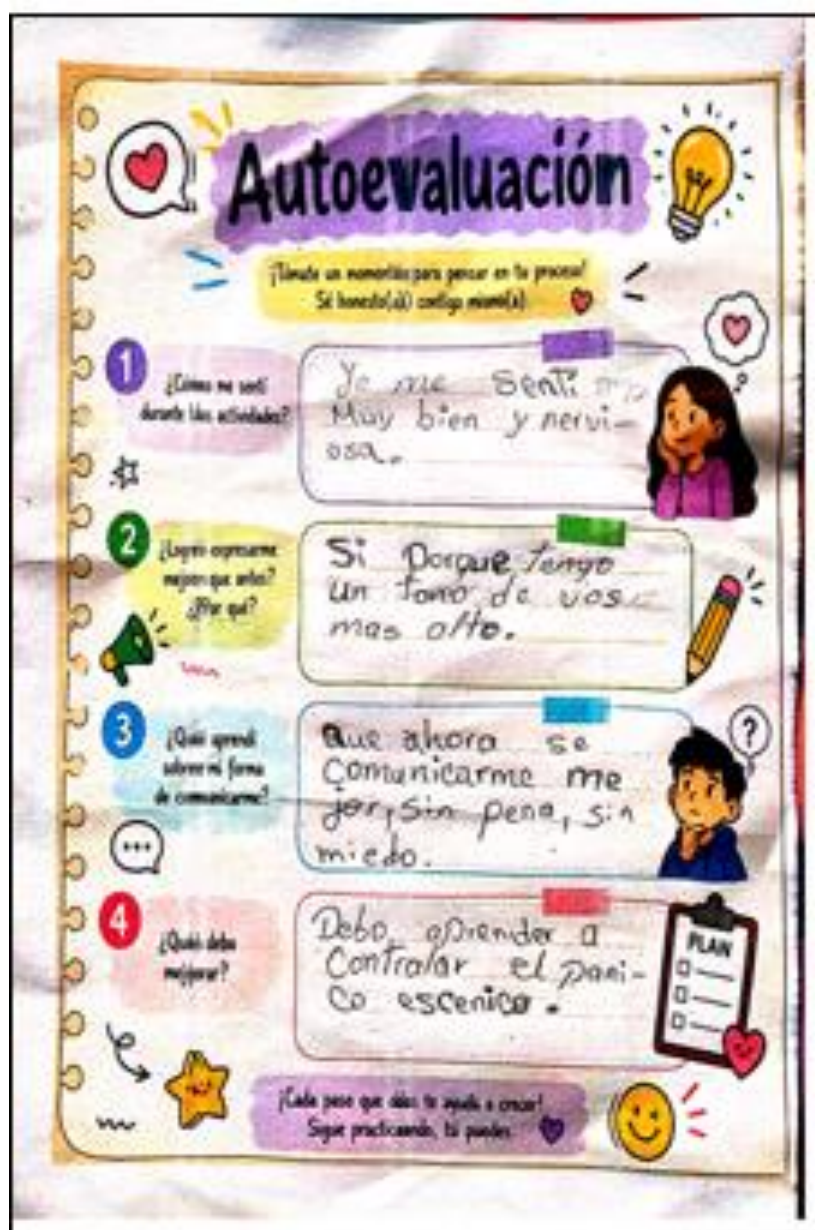 Autoevaluación
¡Tómate un momentito para pensar en tu proceso!
Sé honesto(a) contigo mismo(a).
1
¿Cómo me sentí
durante las actividades?
Yo me senti
Muy bien y nervi-
osa.
2
¿Logré expresarme
mejor que antes?
¿Por qué?
Si Porque tengo
un tono de vos
mas alto.
3
¿Qué aprendí
sobre mi forma
de comunicarme?
Que ahora se
Comunicarme me
jor, sin pena, sin
miedo.
4
¿Qué debo
mejorar?
Debo aprender a
Controlar el pani-
co escenico.
PLAN
¡Cada paso que das te ayuda a crecer!
Sigue practicando, tú puedes